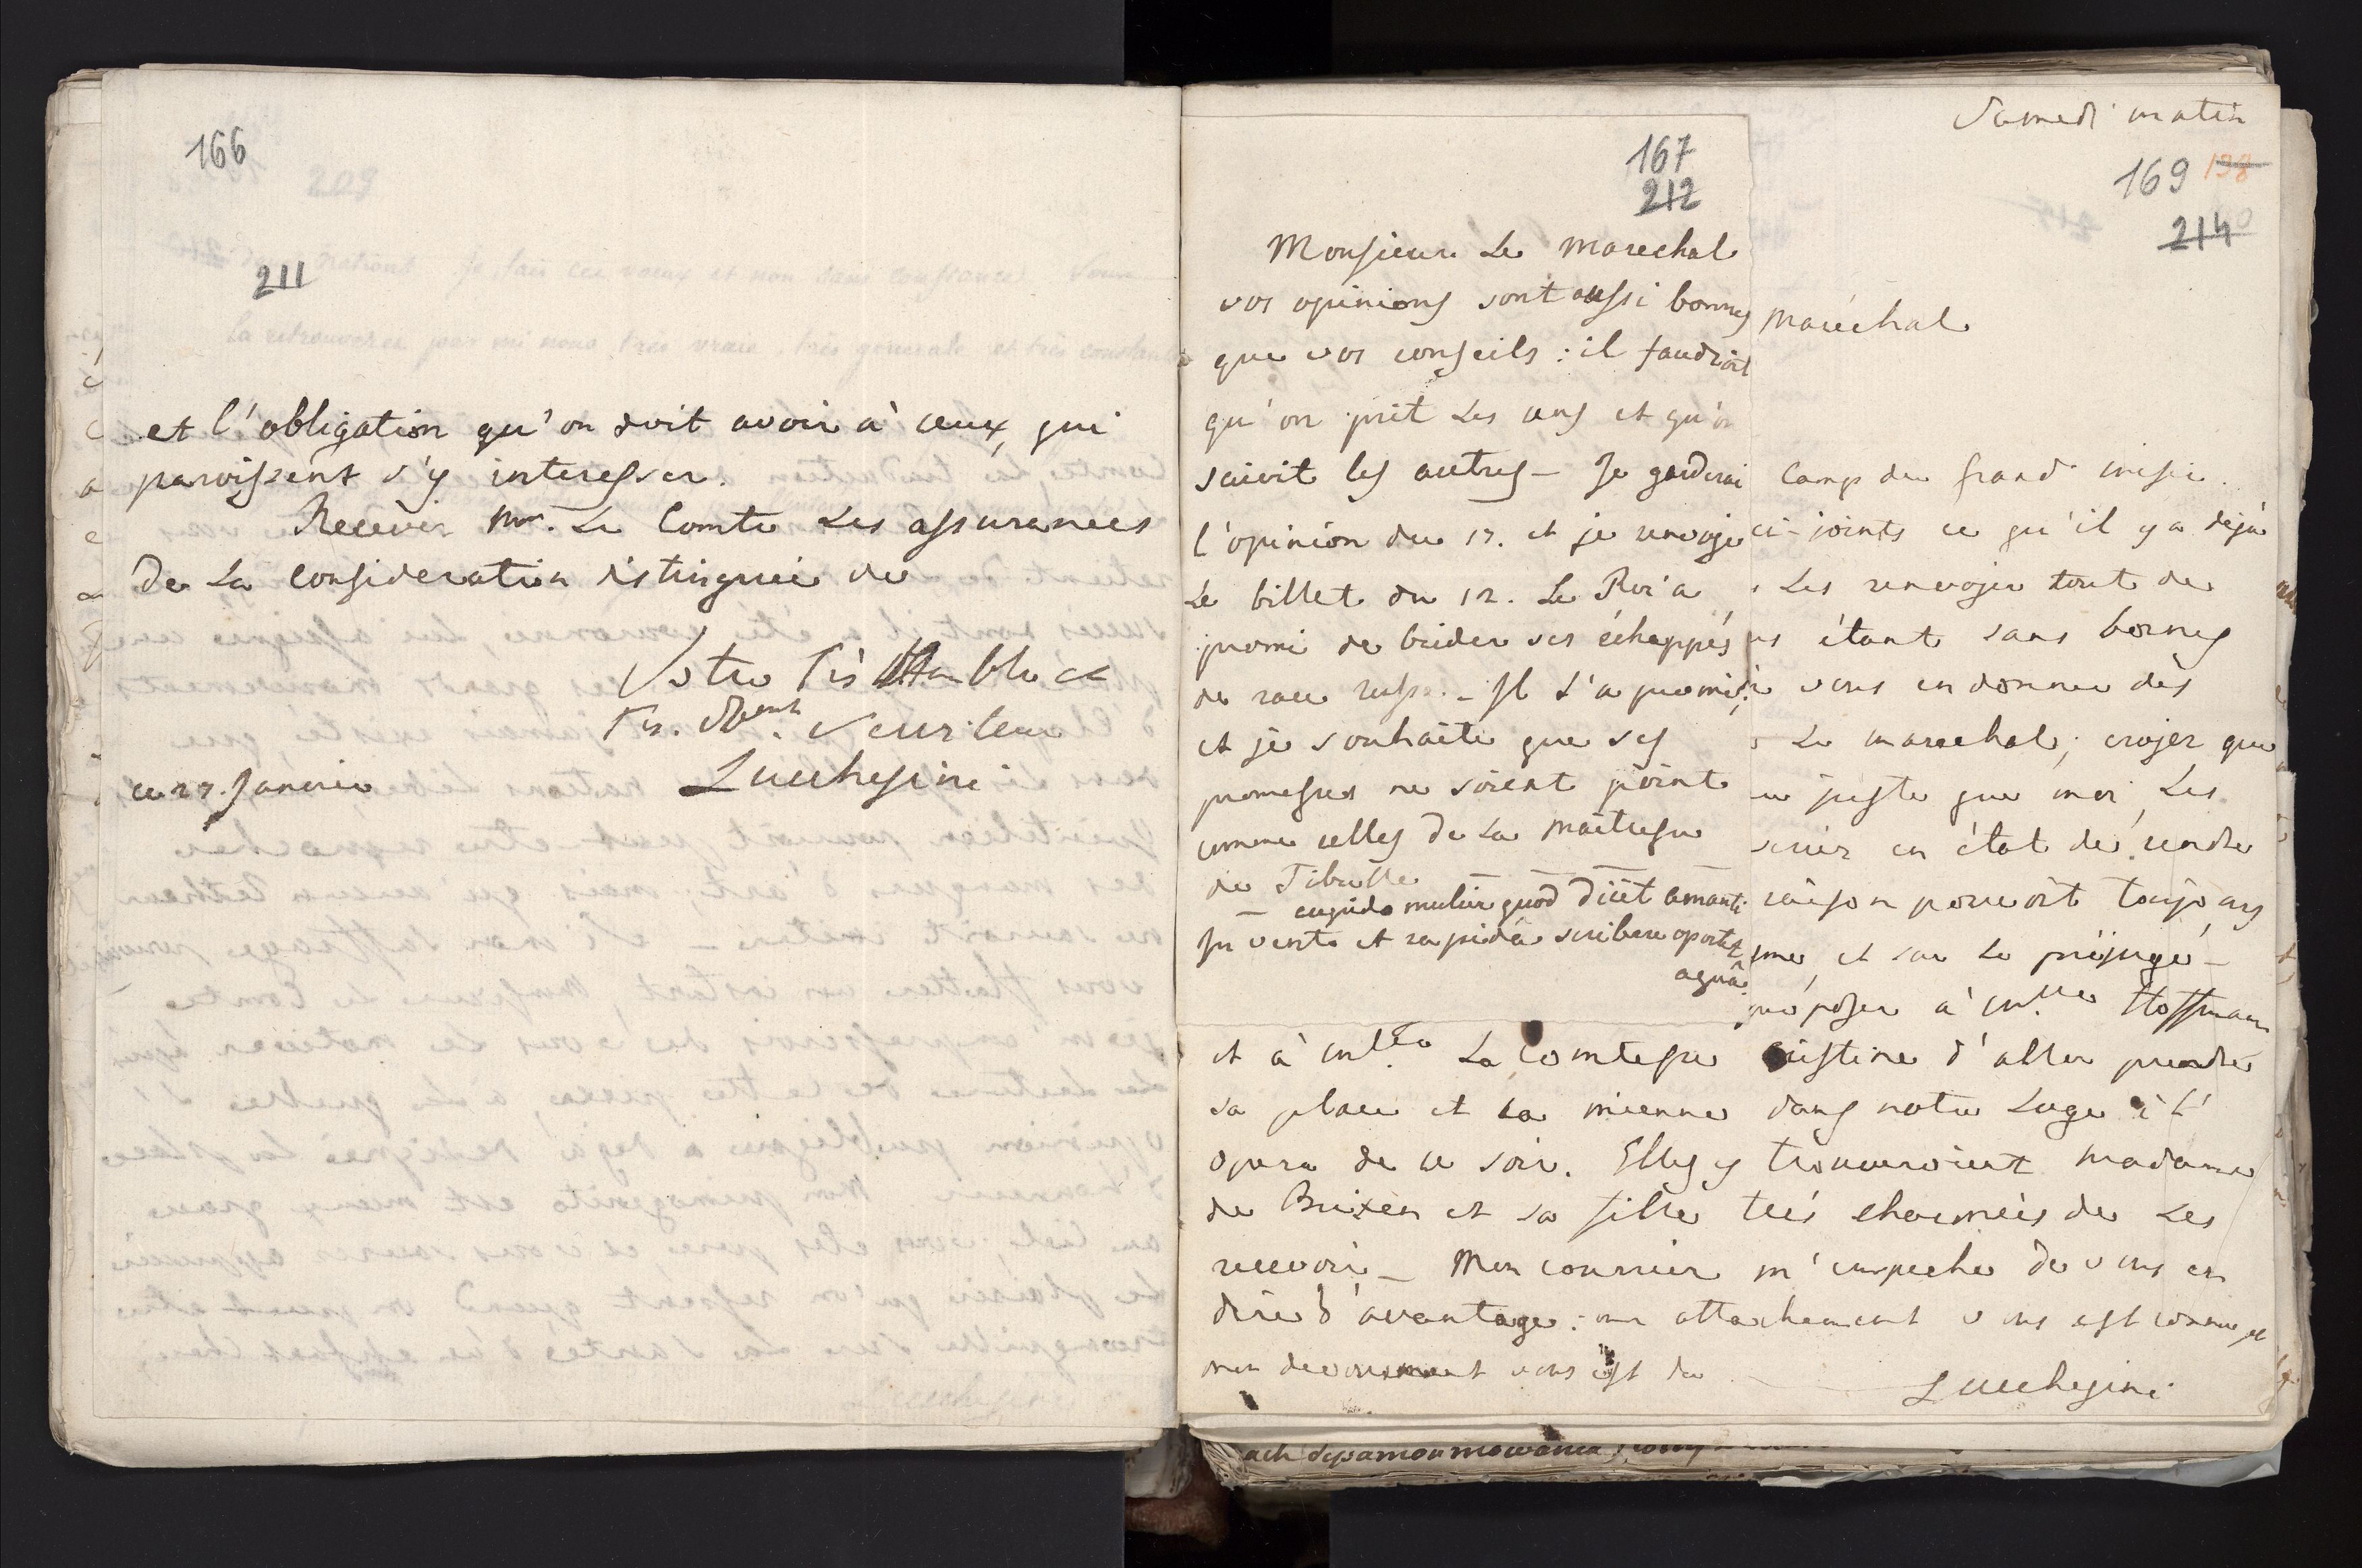 166
211
et l'obligation qu'on doit avoir à ceux, qui
paroissent s'y interesser.
Recevés Mr. Le Comte Les assurances
de La consideration distinguée de
Votre Très Humble et
Tr. Obent. Serviteur
Lucchesini
ce 27. Janvier
167
212
Monsieur Le Marechal
vos opinions sont aussi bonnes
que vos conseils : il faudroit
qu'on prit Les uns et qu'on
suivit les autres _ Je garderai
l'opinion du 17. et je renvoje
Le billet du 12. Le Roi a
promi de brider ses échappés
de race russe. _ Il l'a promis;
et je souhaite que ses
promesses ne soient point
comme celles de La Maitresse
de Tibulle
_ cupido mulier quod dicit amanti
In vento et rapidâ scribere oportet
aquâ.
Samedi matin
169 198
214
Maréchal
Camp du grand visir.
ci-joints ce qu'il y a déja
Les renvojer tout de
étant sans bornes
vous en donner dès
Le marechal; crojez que
juste que moi Les
en état de rendre
raison pouvoit toujours
et sur Le préjugé _
proposer à Mlle Hoffmann
et à Mlle La Comtesse Cristine d'aller prendre
sa place et La mienne dans notre Loge à l'
opera de ce soir. Elles y trouveroient Madame
de Brixen et sa fille très charmées de Les
recevoir _ Mon courrier m'empeche de vous en
dire d'avantage: mon attachement vous est connu et
mon devouement vous est du
Lucchesini